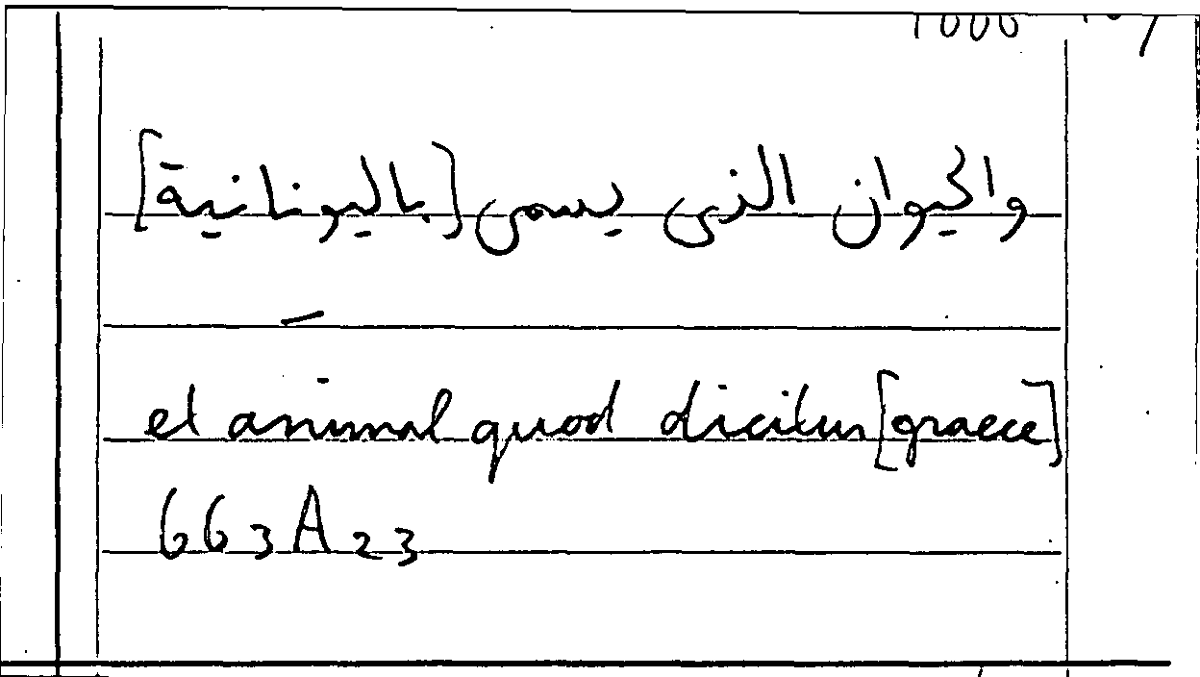 والحيوان الذى يسمى [باليونانية]
–
et animal quod dicitur [graece]
663A23